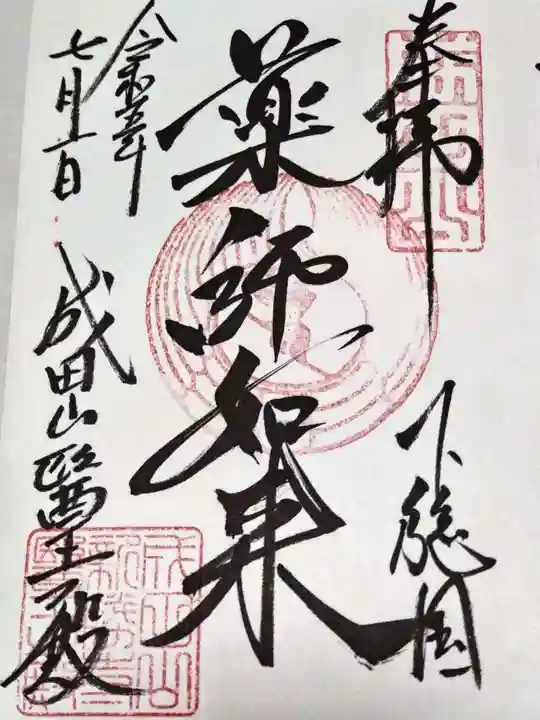 奉拝
下総国
薬師如来
令和五年
七月十一日
成田山醫王殿